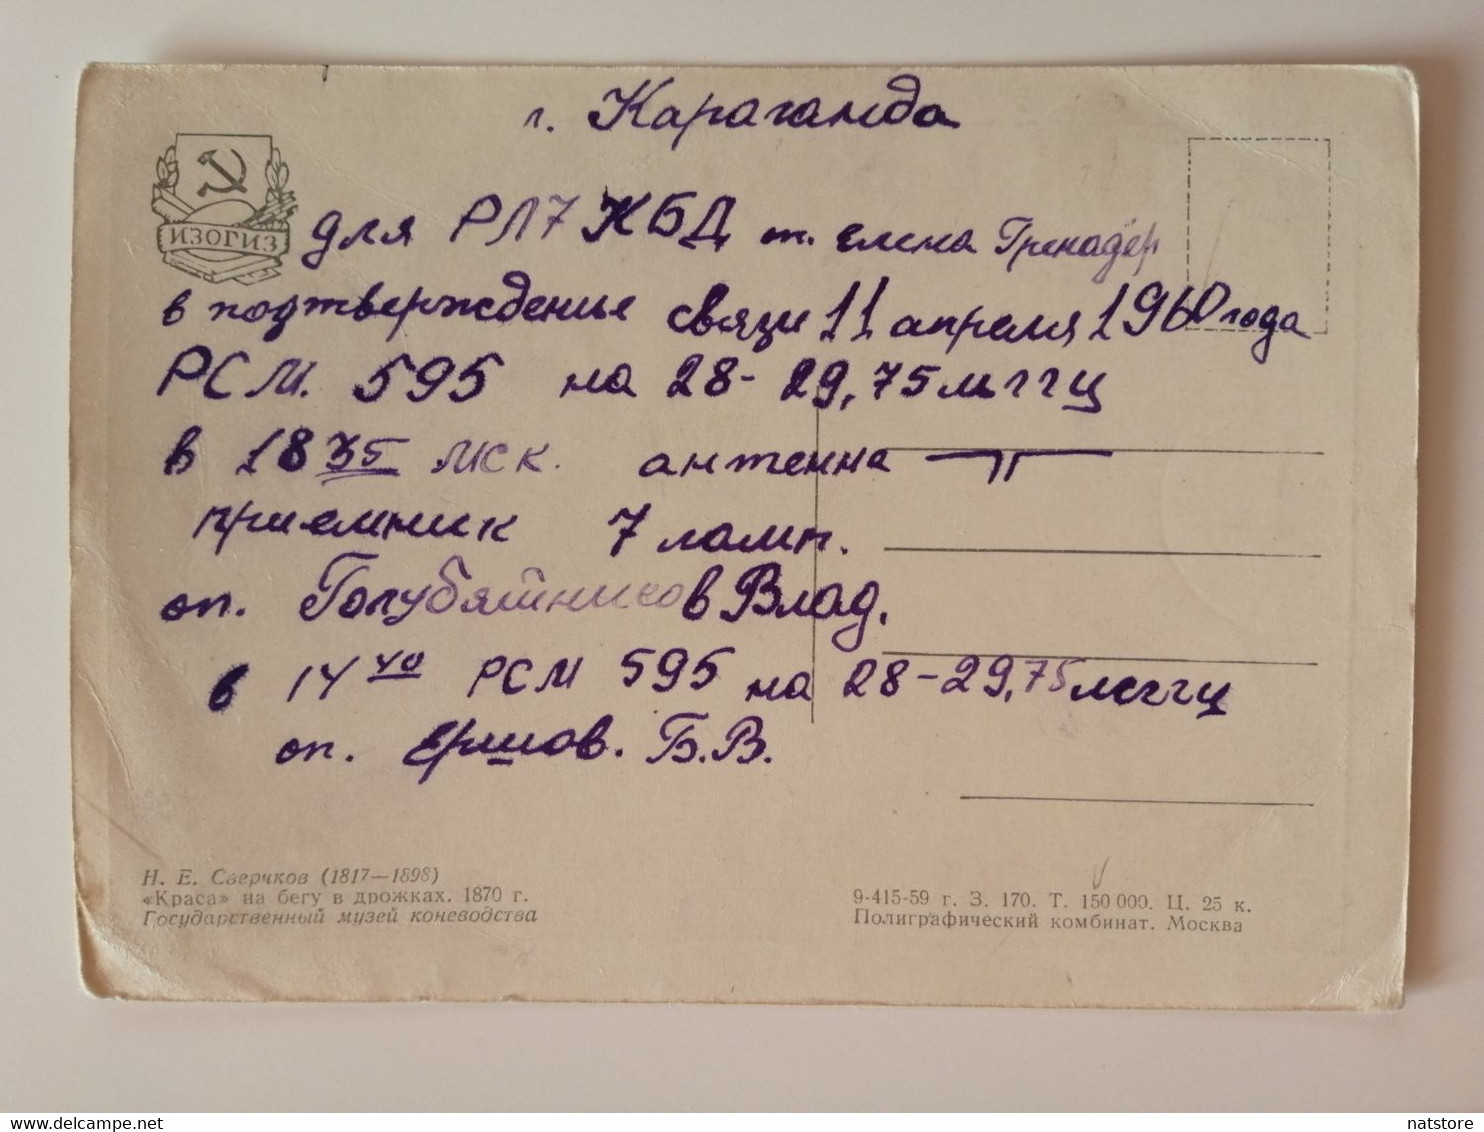 г. Караганда
ИЗОГИЗ
для РЛ7 КБД т. Елена Гренадер
в подтвержденье связи 11 апреля 1960 года
РСМ. 595 на 28-29,75 мггц
в 18 35 мск. антенна
приемник 7 ламп.
оп. Голубятников Влад.
в 14 40 РСМ 595 на 28-29,75 мггц
оп. Ершов. Б.В.
Н. Е. Сверчков (1817—1898)
«Краса» на бегу в дрожках. 1870 г.
Государственный музей коневодства
9-415-59 г. З. 170. Т. 150 000. Ц. 25 к.
Полиграфический комбинат. Москва
natstore